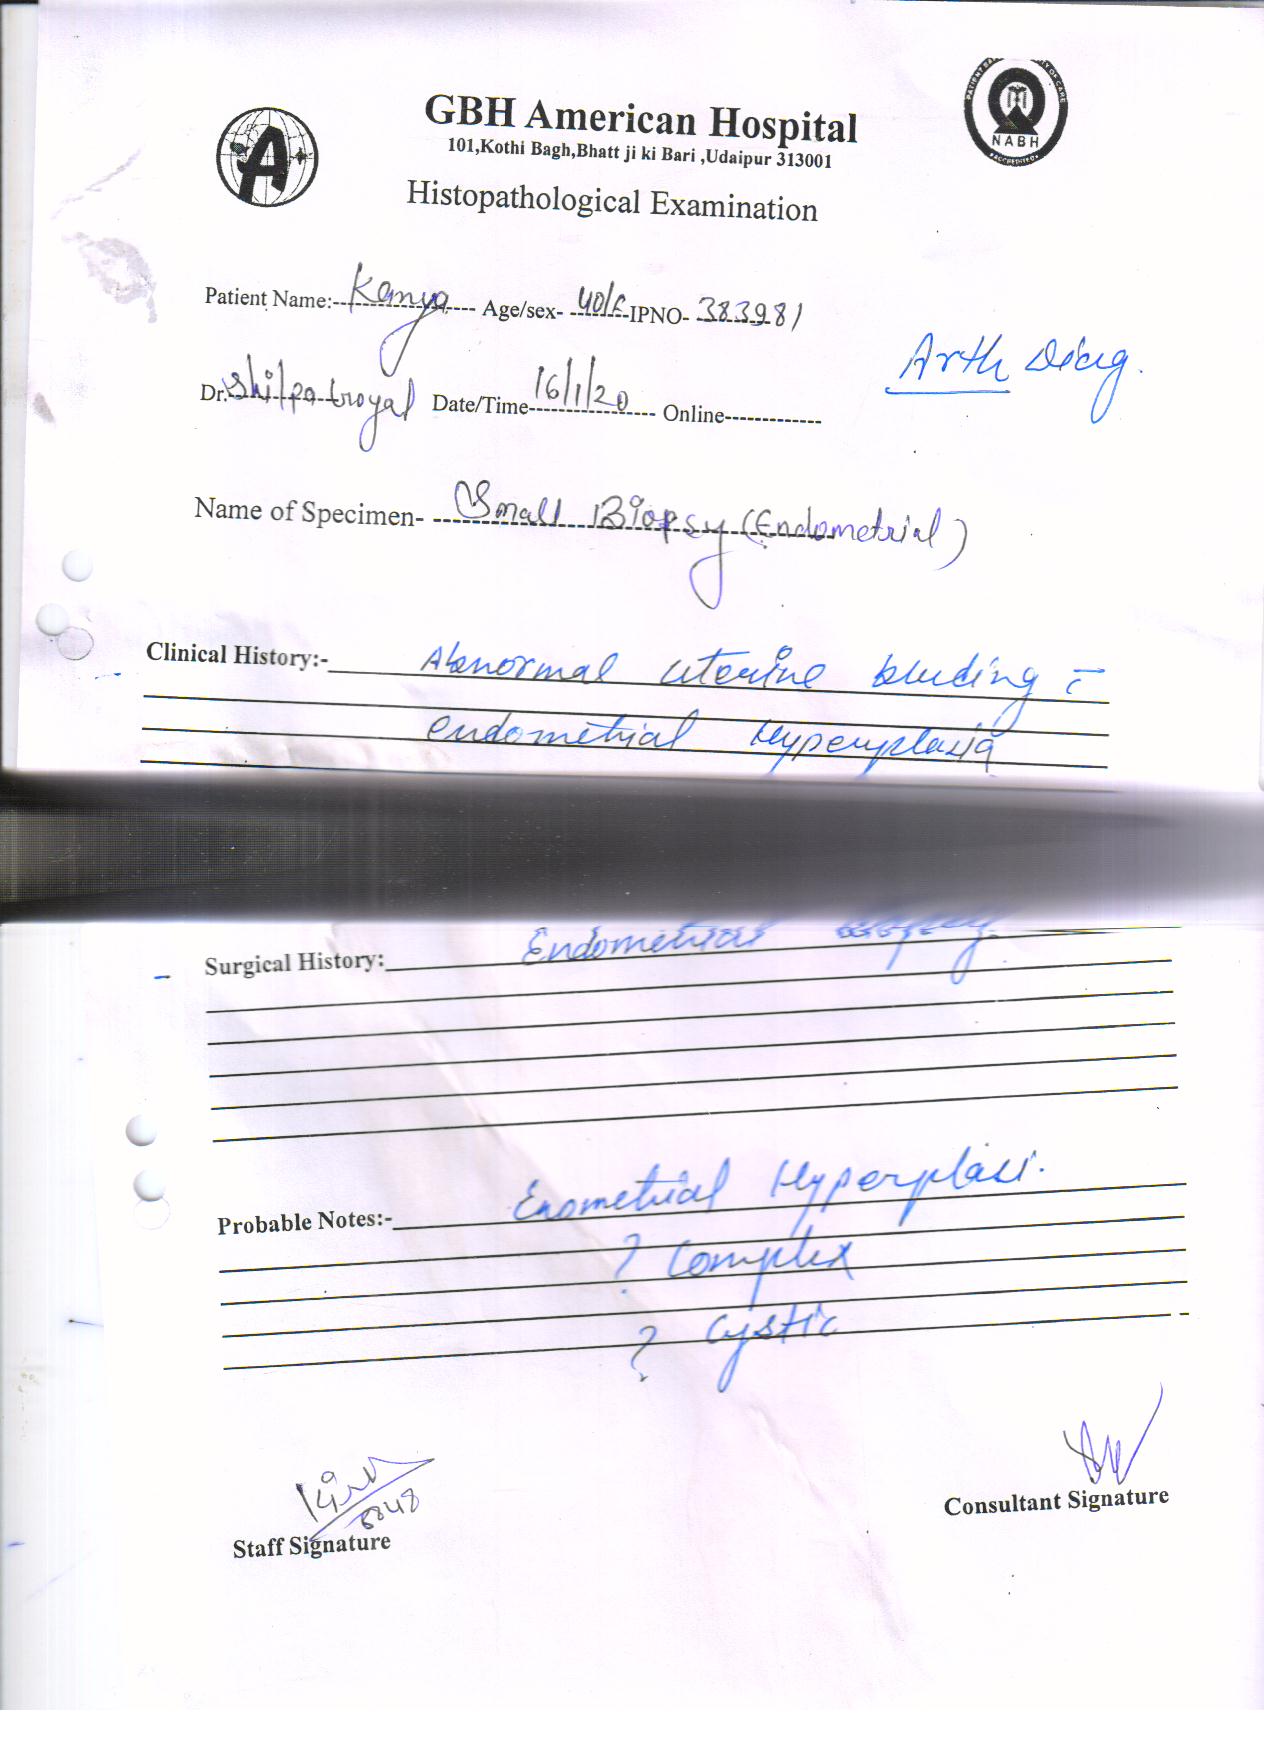 GBH American Hospital
101,Kothi Bagh,Bhatt ji ki Bari ,Udaipur 313001
Histopathological Examination
NABH
Patient Name:- Kanya Age/sex- 40/F IPNO- 383981
Arth Diag.
Dr. Shilpa Goyal Date/Time 16/1/20 Online
Name of Specimen- Small Biopsy (Endometrial)
Clinical History:- Abnormal uterine bleeding c̄
endometrial Hyperplasia
Surgical History: Endometrial
Probable Notes:- Enometrial Hyperplasi.
? Complex
? Cystic
5848
Staff Signature
Consultant Signature